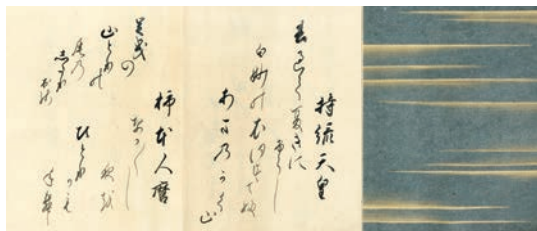 持統天皇
春過て夏きに
けらし
白妙の衣ほすてふ
あまのかく山
柿本人麿
の
山とりの
尾の
したり
尾の
なか〳〵し
夜を
ひとり
かも